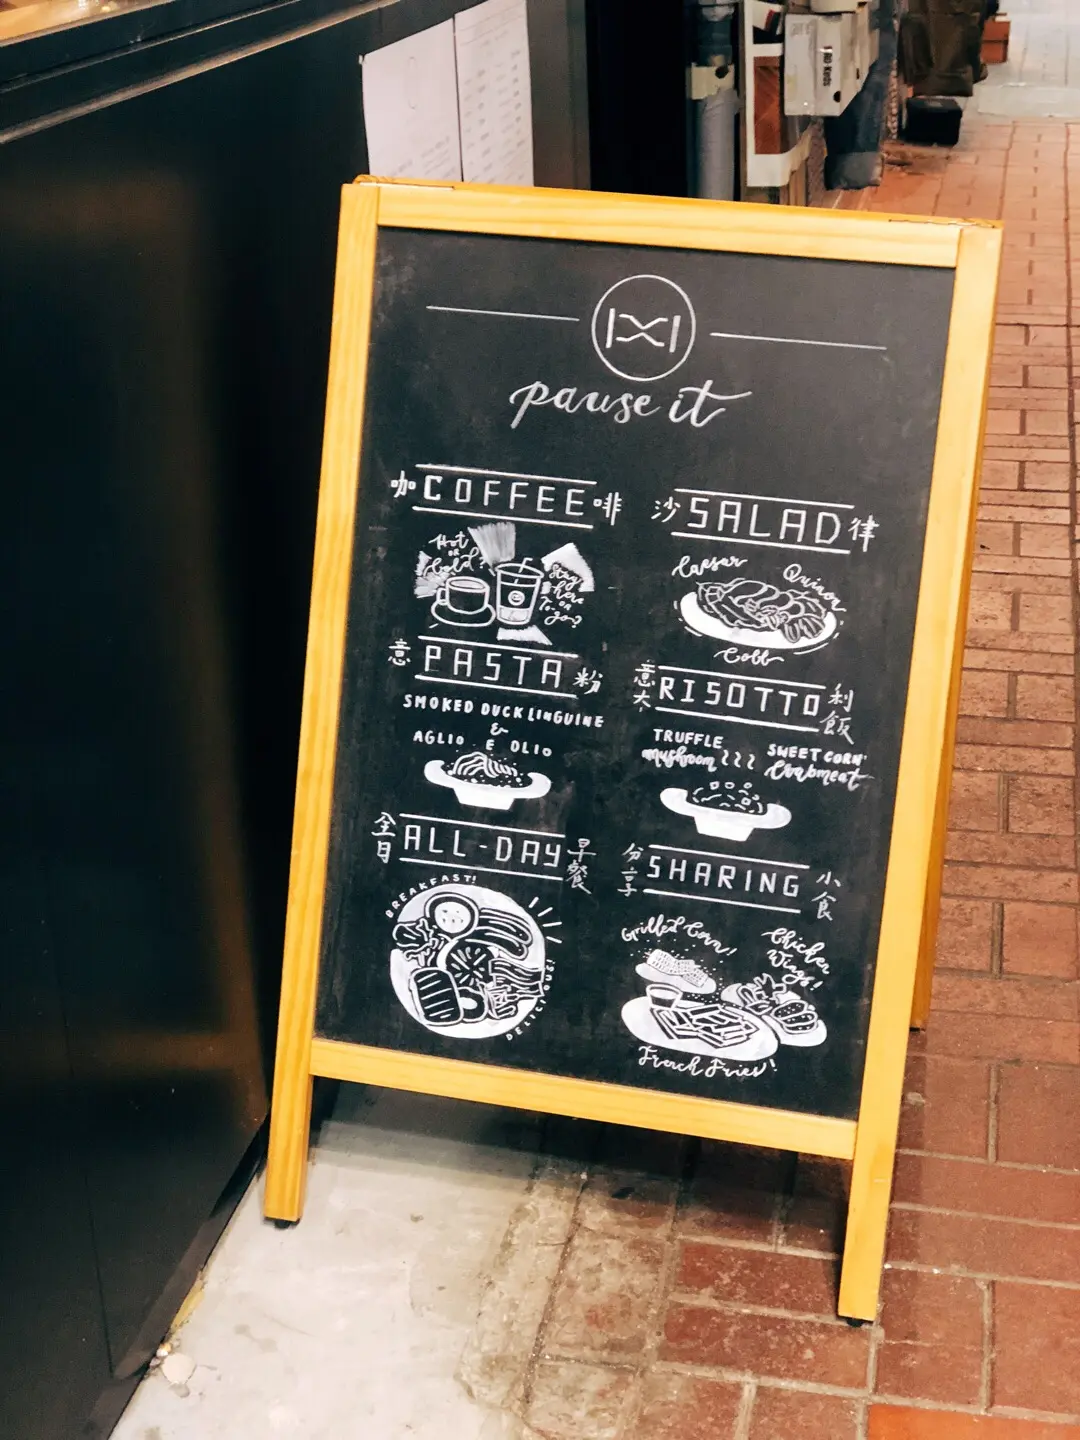 pause it
咖 COFFEE 啡
Hot
OR
Cold?
Stay
here
OR
To-go?
沙 SALAD 律
Caesar
Quinoa
Cobb
意 PASTA 粉
SMOKED DUCK LINGUINE
&
AGLIO E OLIO
意大 RISOTTO 利飯
TRUFFLE
mushroom
SWEET CORN
Crabmeat
全日 ALL-DAY 早餐
BREAKFAST!
DELICIOUS!
分享 SHARING 小食
Grilled Corn!
Chicken
Wings!
French Fries!